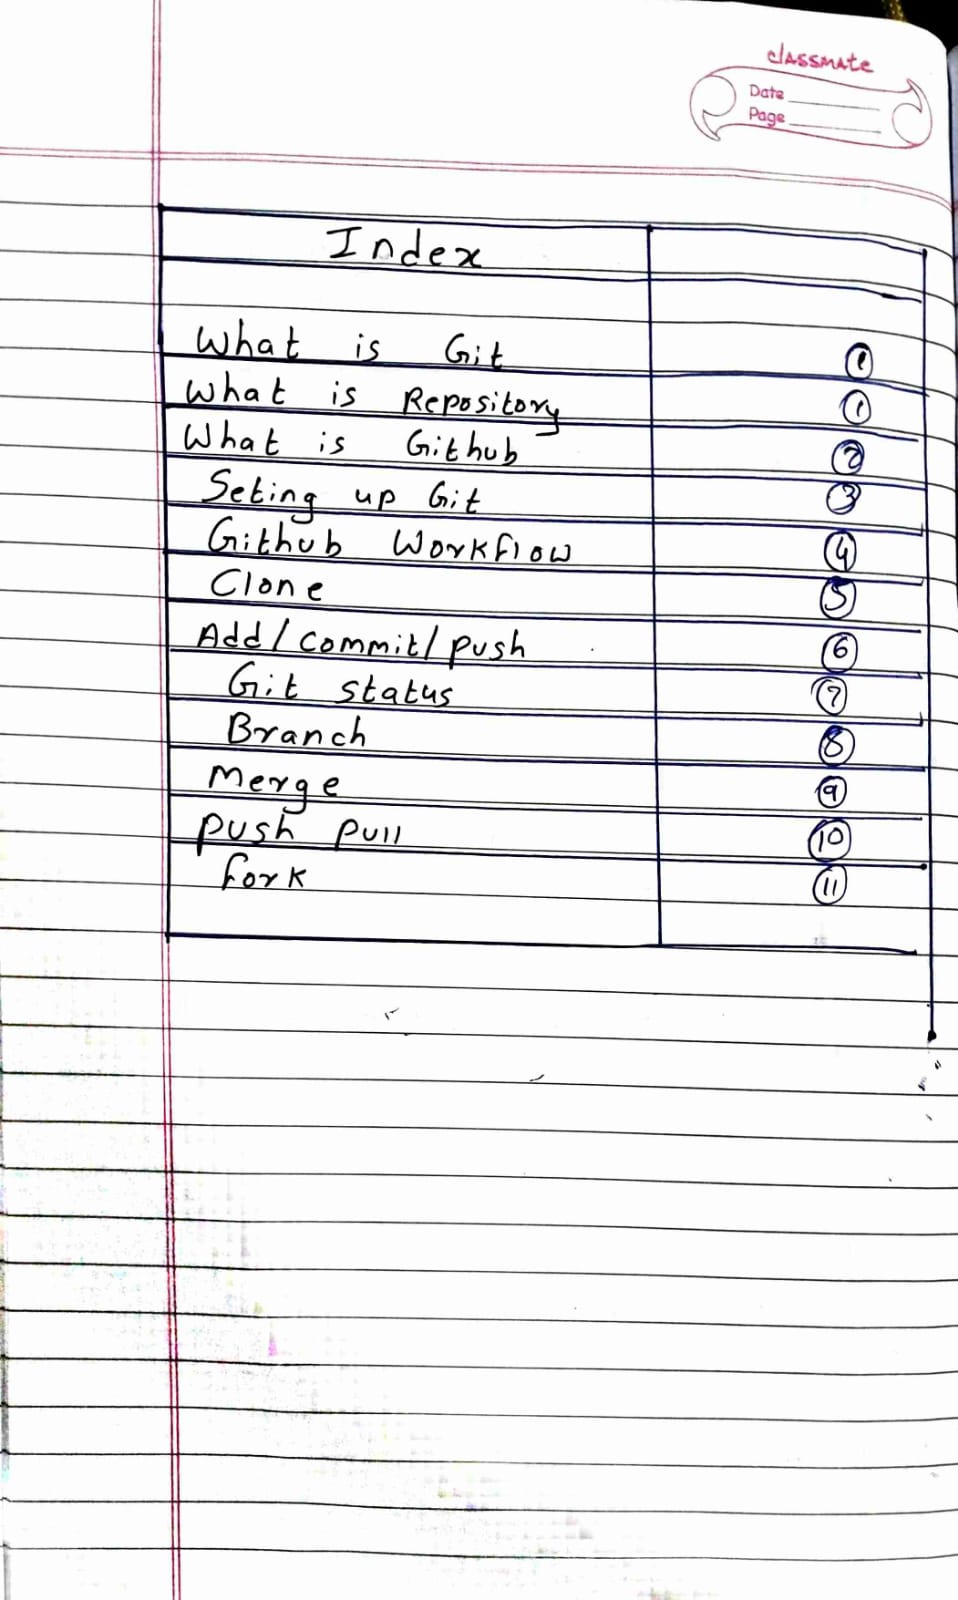 classmate
Date
Page
Index
What is Git 1
What is Repository 1
What is Github 2
Seting up Git 3
Github Workflow 4
Clone 5
Add/Commit/push 6
Git status 7
Branch 8
Merge 9
push pull 10
fork 11